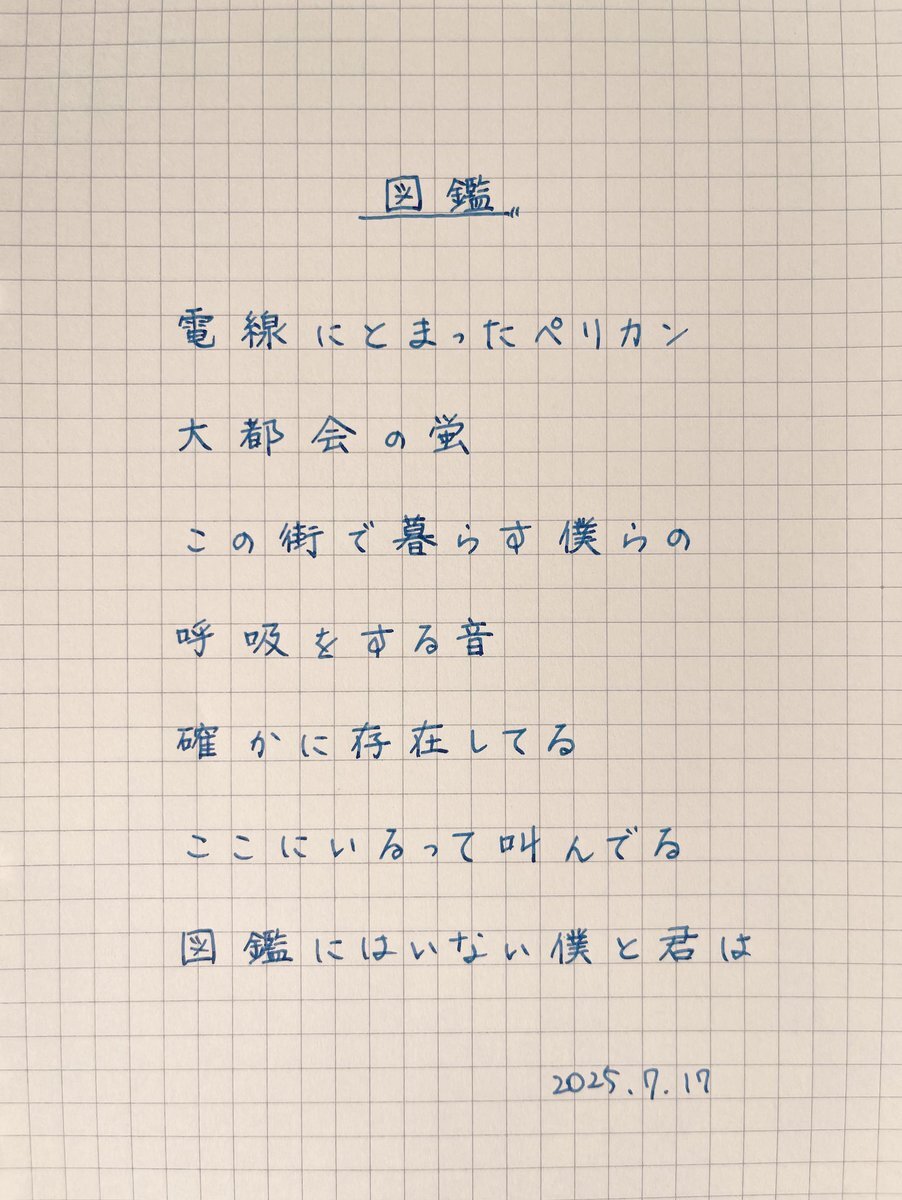 図鑑
電線にとまったペリカン
大都会の蛍
この街で暮らす僕らの
呼吸をする音
確かに存在してる
ここにいるって叫んでる
図鑑にはいない僕と君は
2025.7.17